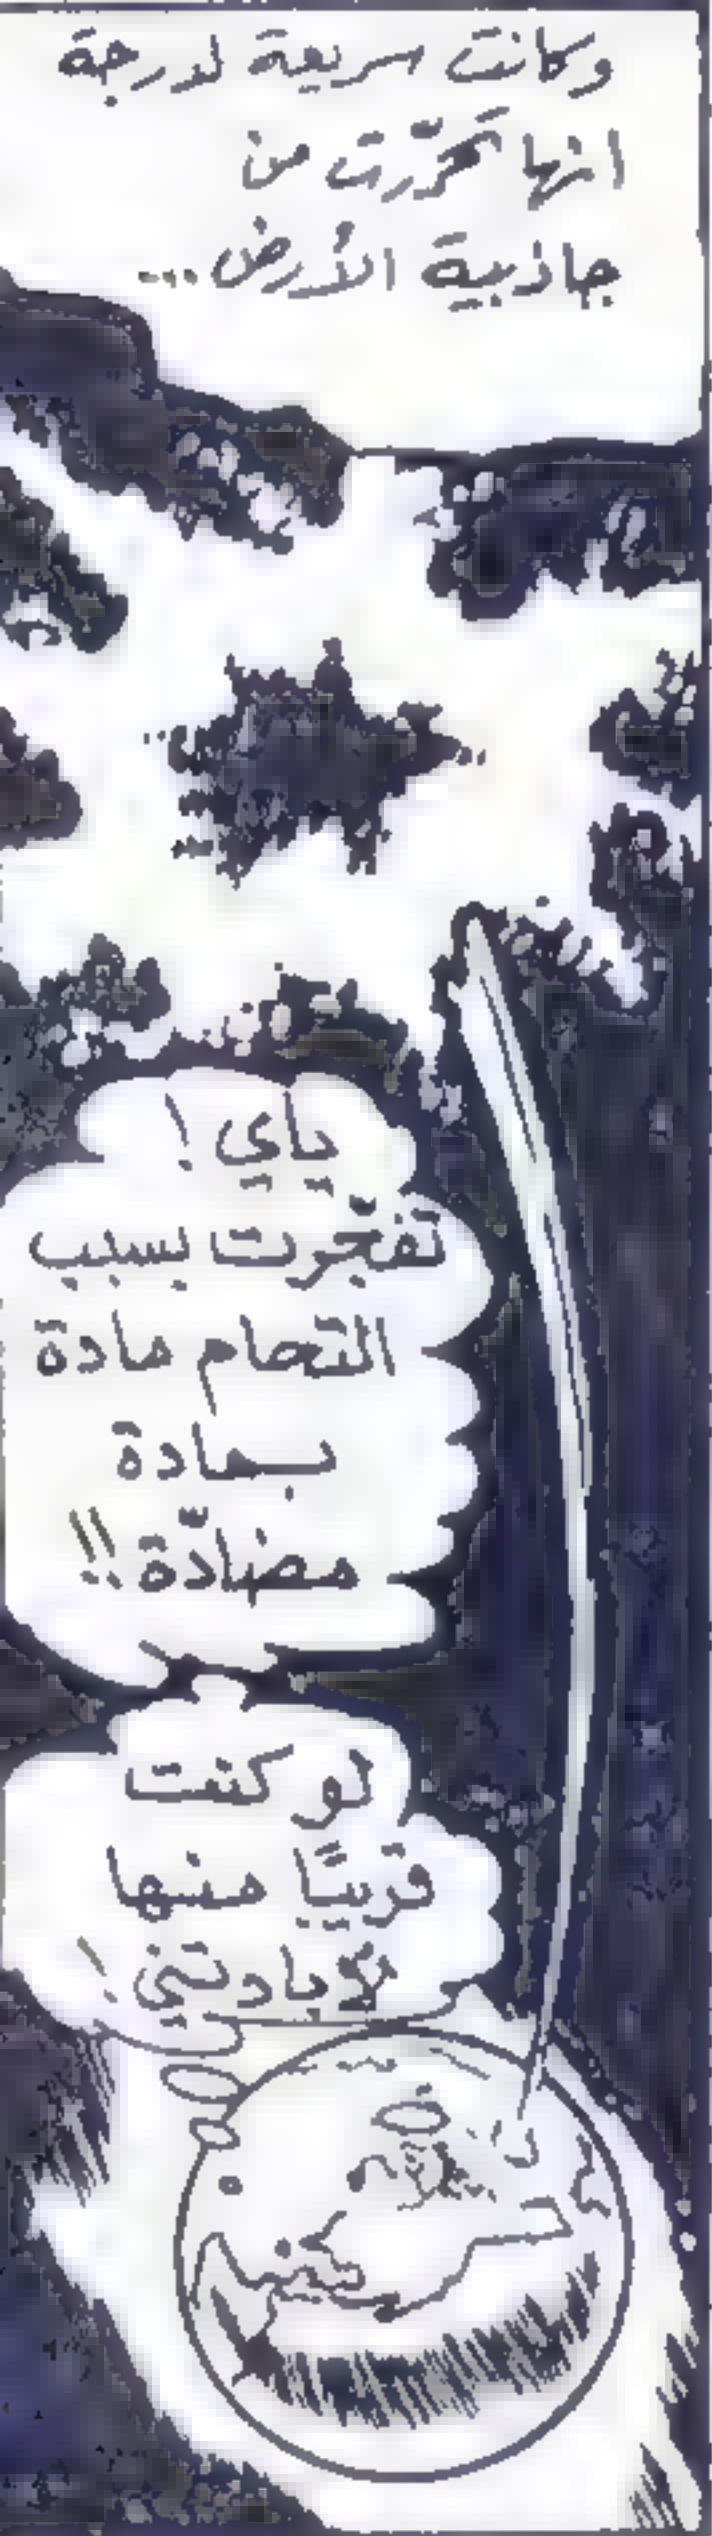 وكانت سريعة لدرجة
انها تحرّرت من
جاذبية الأرض...
ياي !
تفجّرت بسبب
التحام مادة
بمادة
مضادّة !!
لو كنت
قريبًا منها
لأبادتني !